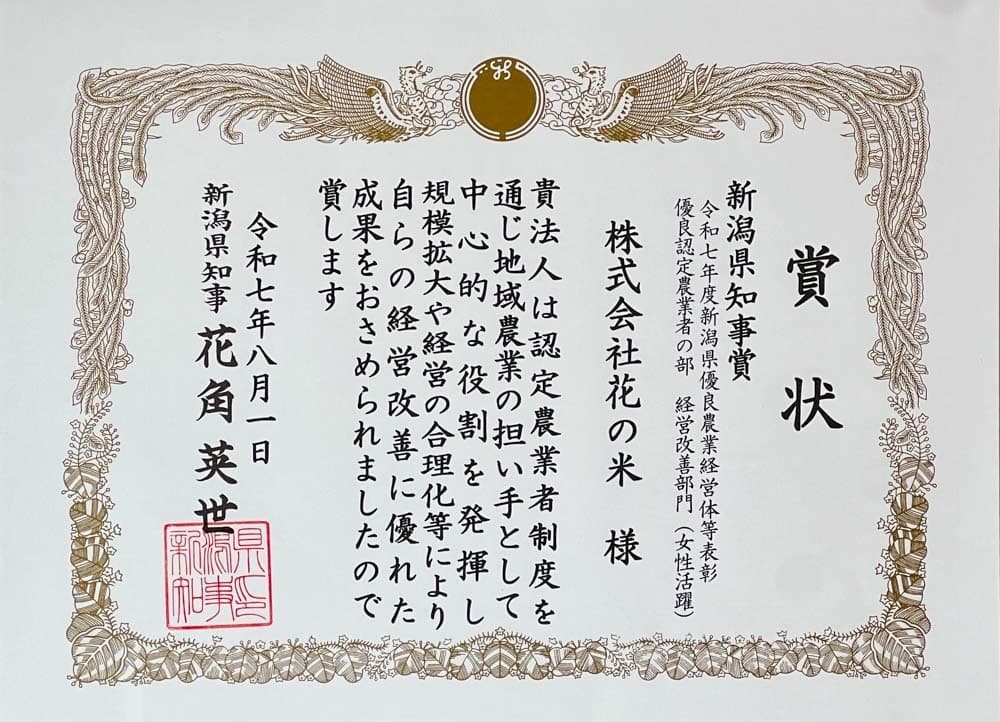 賞状
新潟県知事賞
令和七年度新潟県優良農業経営体等表彰
優良認定農業者の部　経営改善部門（女性活躍）
株式会社花の米　様
貴法人は認定農業者制度を
通じ地域農業の担い手として
中心的な役割を発揮し
規模拡大や経営の合理化等により
自らの経営改善に優れた
成果をおさめられましたので
賞します
令和七年八月一日
新潟県知事　花角英世
新潟県知事印